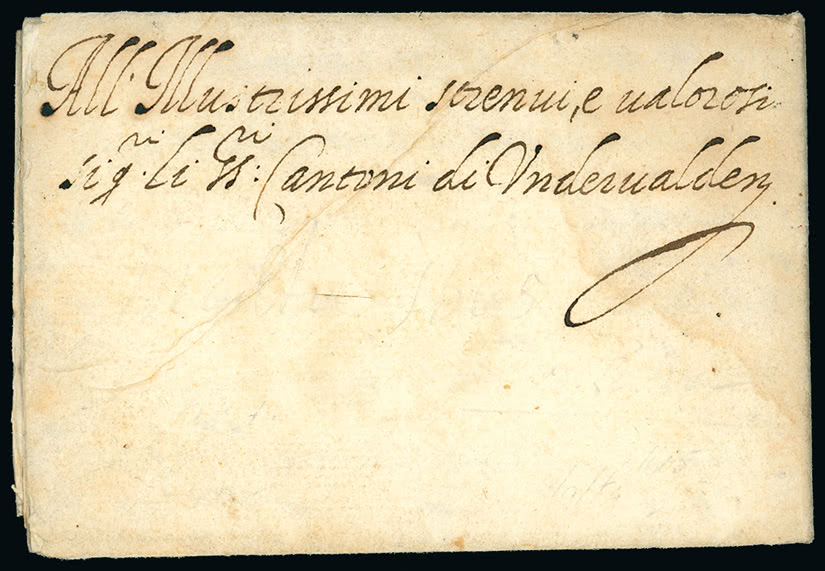 All' Illustrissimi strenui, e ualorosi
sig.ri li SS.ri: Cantoni di Vnderualden